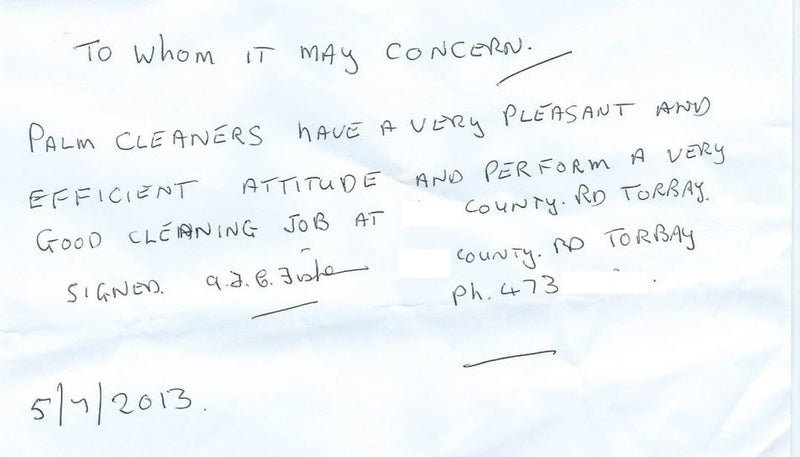 To Whom IT MAY CONCERN.
PALM CLEANERS HAVE A VERY PLEASANT AND
EFFICIENT ATTITUDE AND PERFORM A VERY
GOOD CLEANING JOB AT COUNTY. RD TORBAY.
COUNTY. RD TORBAY
SIGNED.
Ph. 473
5/7/2013.